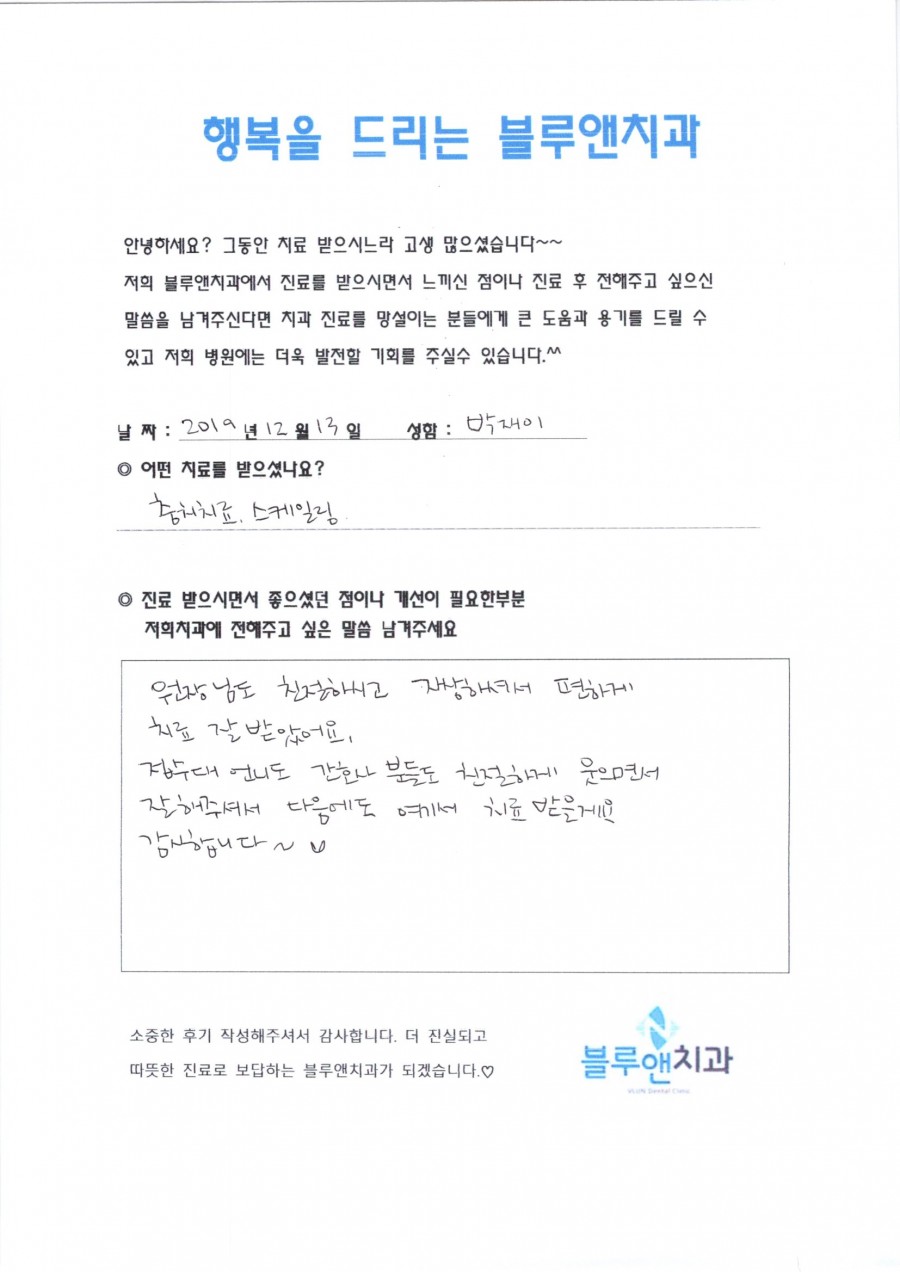 행복을 드리는 블루앤치과
안녕하세요? 그동안 치료 받으시느라 고생 많으셨습니다~~
저희 블루앤치과에서 진료를 받으시면서 느끼신 점이나 진료 후 전해주고 싶으신
말씀을 남겨주신다면 치과 진료를 망설이는 분들에게 큰 도움과 용기를 드릴 수
있고 저희 병원에는 더욱 발전할 기회를 주실수 있습니다.^^
날 짜 : 2019 년 12 월 13 일 성함 : 박재이
◎ 어떤 치료를 받으셨나요?
충치치료, 스케일링
◎ 진료 받으시면서 좋으셨던 점이나 개선이 필요한부분
저희치과에 전해주고 싶은 말씀 남겨주세요
원장님도 친절하시고 자상하셔서 편하게
치료 잘 받았어요.
접수대 언니도 간호사 분들도 친절하게 웃으면서
잘해주셔서 다음에도 여기서 치료 받을게요
감사합니다~
소중한 후기 작성해주셔서 감사합니다. 더 진실되고
따뜻한 진료로 보답하는 블루앤치과가 되겠습니다.♡
블루앤치과
VLUN Dental Clinic